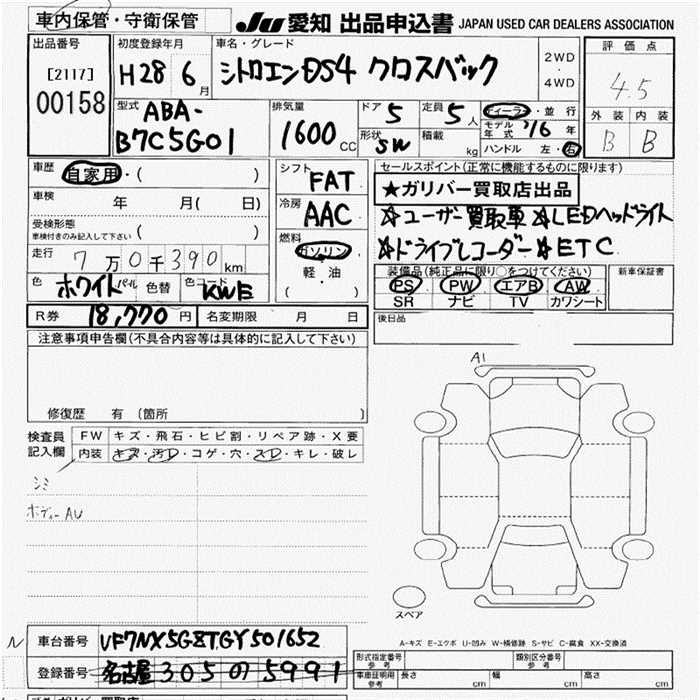 車内保管・守衛保管
JU 愛知 出品申込書 JAPAN USED CAR DEALERS ASSOCIATION
出品番号
[2117]
00158
初度登録年月
H28 6月
車名・グレード
シトロエンDS4 クロスバック
2WD
・
4WD
評価点
4.5
外装 内装
B B
型式
ABA-
B7C5G01
排気量
1600 CC
ドア 5
定員 5人
形状 SW
積載 kg
ディーラー・並行
モデル年式 '16 年
ハンドル 左・右
車歴 自家用・( )
車検 年 月( 日)
受検形態
車検付きのみ記入して下さい ( )
走行 7万0千390km
色 ホワイトパール 色替 色コード KWE
シフト FAT
冷房 AAC
燃料 ガソリン
軽・油
( )
セールスポイント(正常に機能するものに限ります)
★ガリバー買取店出品
☆ユーザー買取車☆LEDヘッドライト
☆ドライブレコーダー☆ETC
装備品(純正品に限り○をつけてください)
PS PW エアB AW
SR ナビ TV カワシート
新車保証書
R券 18,770円 名変期限 月 日
後日品
注意事項申告欄(不具合内容等は具体的に記入して下さい)
修復歴 有 〔箇所 〕
A1
検査員記入欄
FW キズ・飛石・ヒビ割・リペア跡・X要
内装 キズ・汚レ・コゲ・穴・スレ・キレ・破レ
シミ
ボディーAU
スペア
A-キズ E-エクボ U-凹み W-補修跡 S-サビ C-腐食 XX-交換済
N
車台番号 VF7NX5GZTGY501652
登録番号 名古屋 305 の 5991
形式指定番号 参考
類別区分番号 参考
車庫証明用 参考 長さ cm 幅 cm 高さ cm
ガリバー買取店